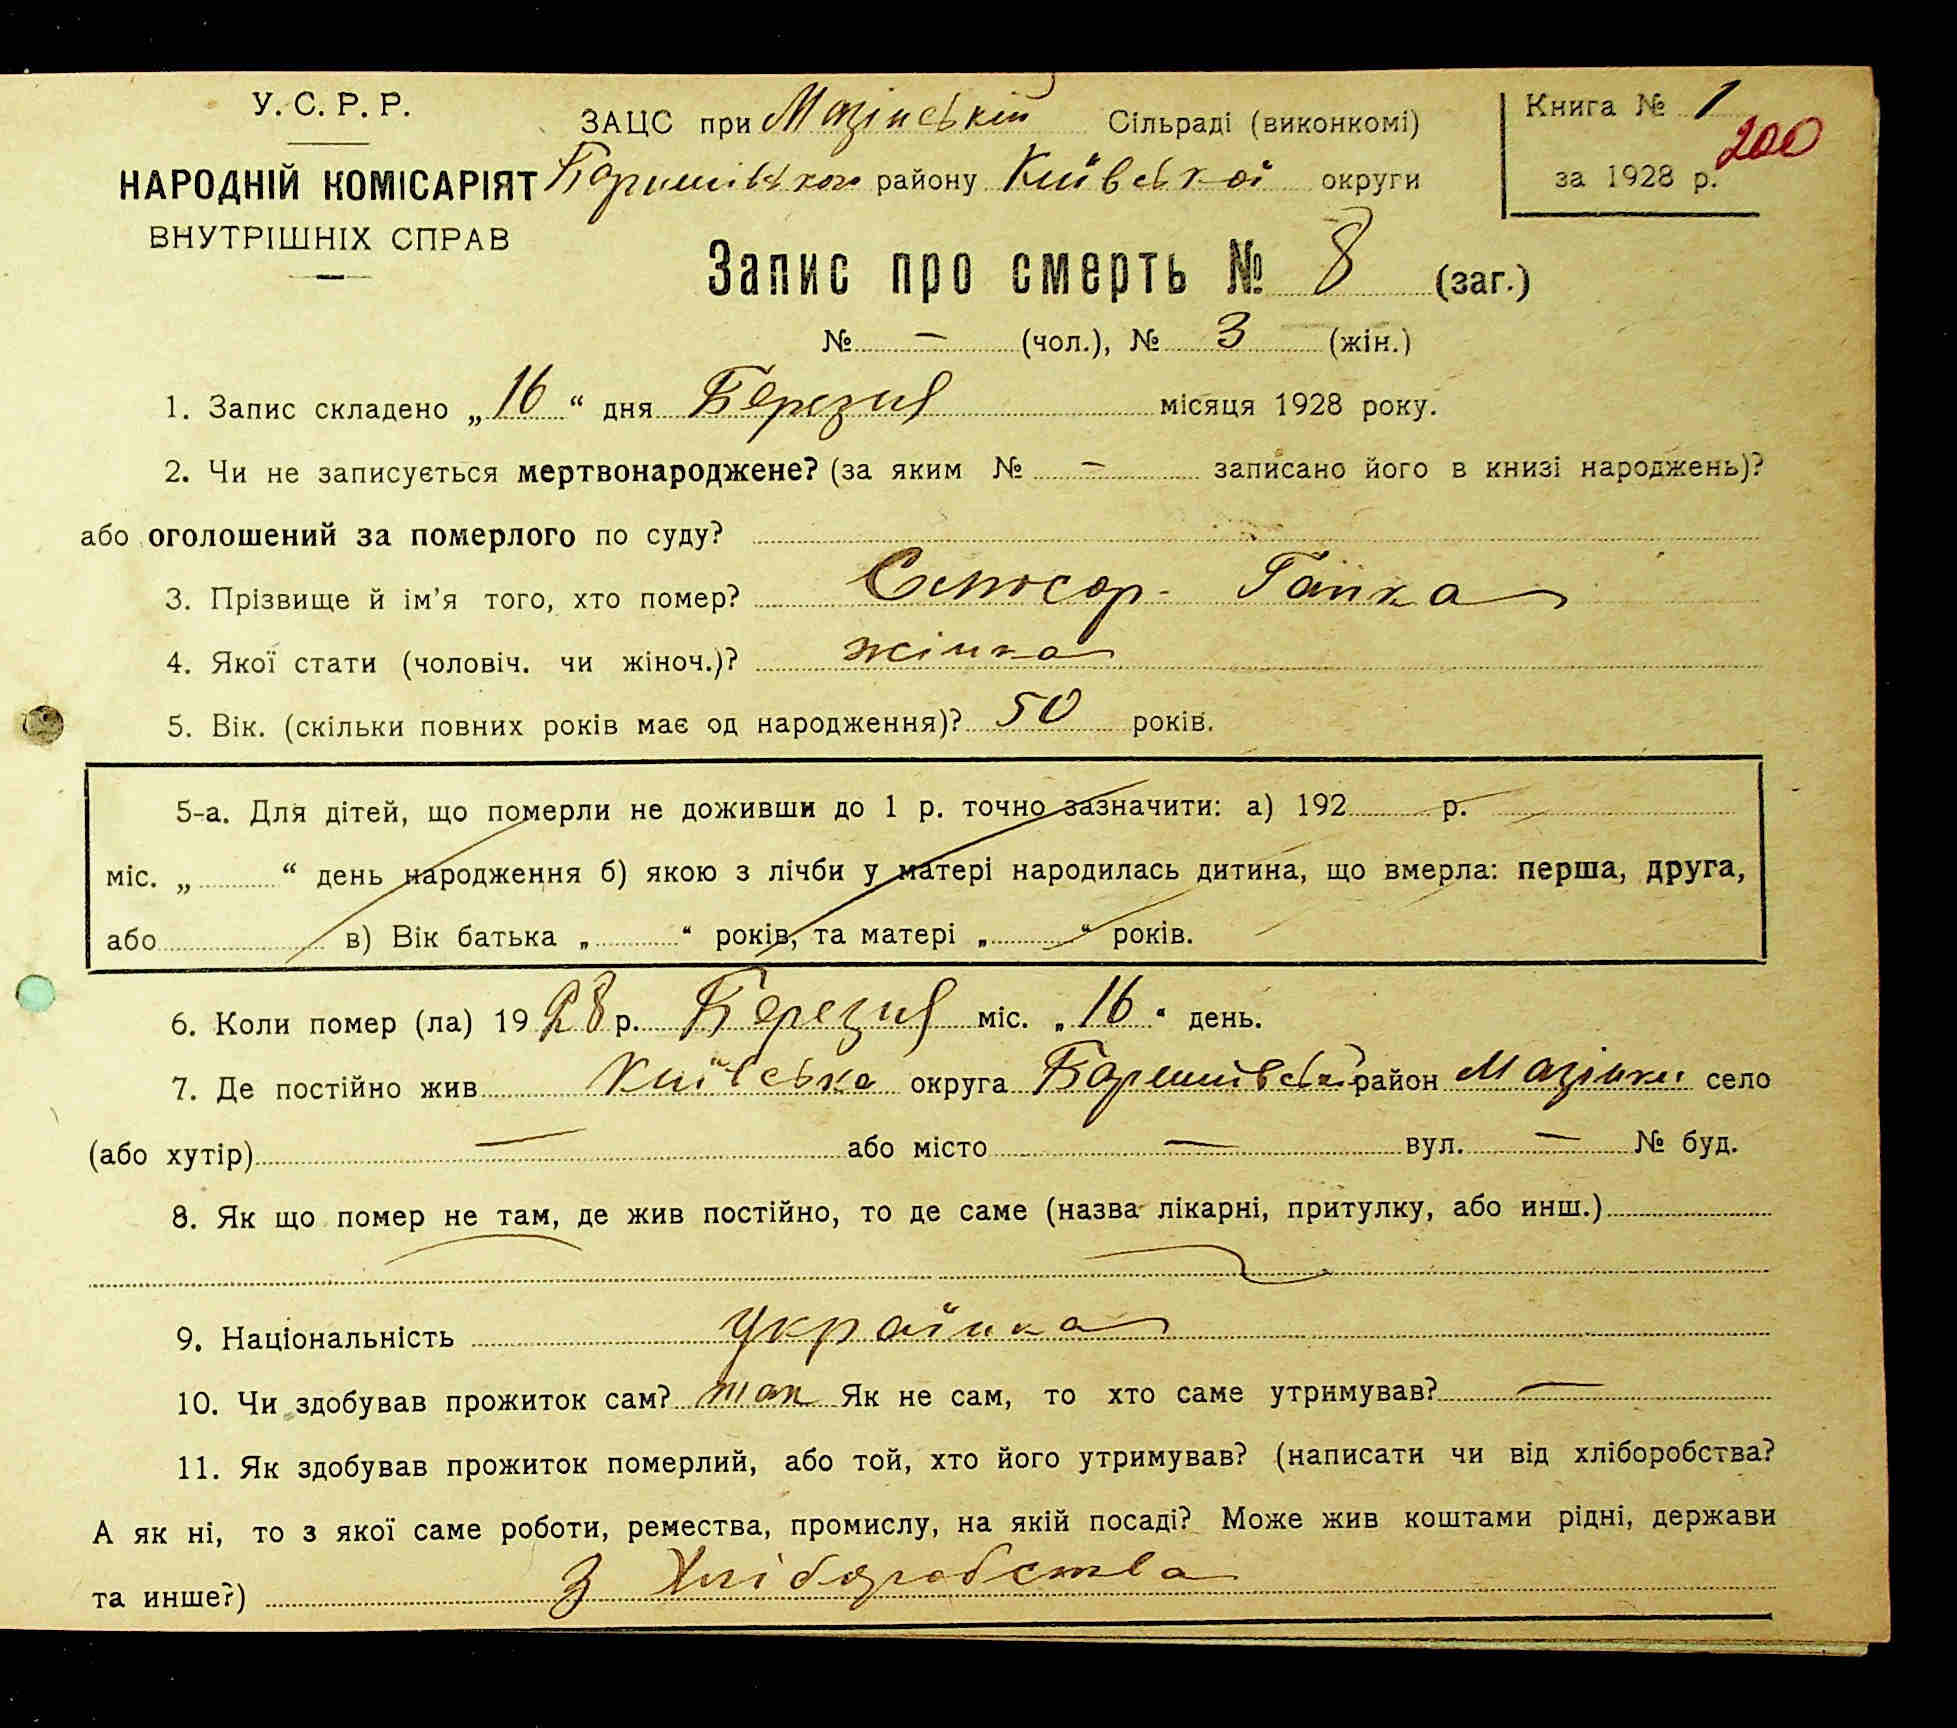 У. С. Р. Р.
НАРОДНІЙ КОМІСАРІЯТ
ВНУТРІШНІХ СПРАВ
ЗАЦС при Мазінській Сільраді (виконкомі)
Баришівськог району Київської округи
Книга № 1
200
за 1928 р.
Запис про смерть № 8 (заг.)
№ — (чол.), № 3 (жін.)
1. Запис складено „16“ дня Березня місяця 1928 року.
2. Чи не записується мертвонароджене? (за яким № — записано його в книзі народжень)?
або оголошений за померлого по суду?
3. Прізвище й ім’я того, хто помер? Гапка
4. Якої стати (чоловіч. чи жіноч.)? жінка
5. Вік. (скільки повних років має од народження)? 50 років.
5-а. Для дітей, що померли не доживши до 1 р. точно зазначити: а) 192 р.
міс. „ “ день народження б) якою з лічби у матері народилась дитина, що вмерла: перша, друга,
або в) Вік батька „ “ років, та матері „ “ років.
6. Коли помер (ла) 1928 р. Березня міс. „16“ день.
7. Де постійно жив Київська округа Баришівський район Мазінки село
(або хутір) — або місто — вул. — № буд.
8. Як що помер не там, де жив постійно, то де саме (назва лікарні, притулку, або инш.)
9. Національність Українка
10. Чи здобував прожиток сам? так Як не сам, то хто саме утримував? —
11. Як здобував прожиток померлий, або той, хто його утримував? (написати чи від хліборобства?
А як ні, то з якої саме роботи, ремества, промислу, на якій посаді? Може жив коштами рідні, держави
та инше?) З Хліборобства